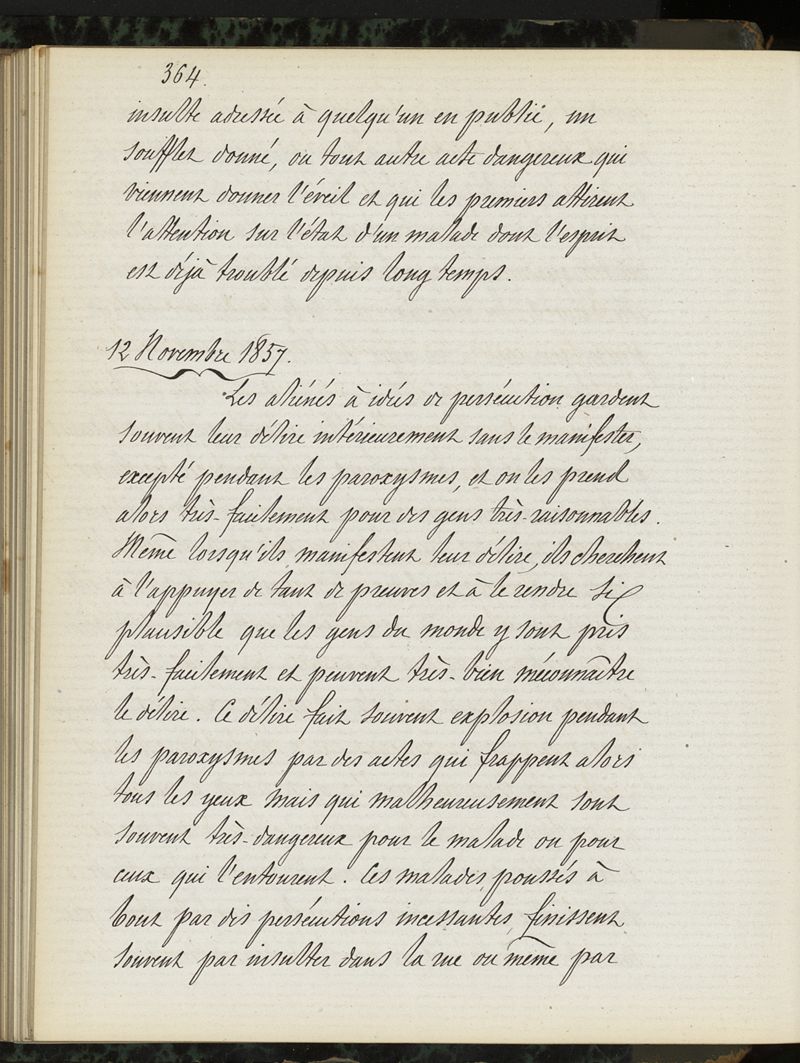 364.
insulte adressée à quelqu'un en public, un
soufflet donné, ou tout autre acte dangereux qui
viennent donner l'éveil et qui les premiers attirent
l'attention sur l'état d'un malade dont l'esprit
est déjà troublé depuis long temps.
12 Novembre 1857.
Les aliénés à idées de persécution gardent
souvent leur délire intérieurement sans le manifester,
excepté pendant les paroxysmes, et on les prend
alors très-facilement pour des gens très-raisonnables.
Même lorsqu'ils manifestent leur délire, ils cherchent
à l'appuyer de tant de preuves et à le rendre si
plausible que les gens du monde y sont pris
très-facilement et peuvent très-bien méconnaître
le délire. Ce délire fait souvent explosion pendant
les paroxysmes par des actes qui frappent alors
tous les yeux mais qui malheureusement sont
souvent très-dangereux pour le malade ou pour
ceux qui l'entourent. Ces malades, poussés à
bout par des persécutions incessantes, finissent
souvent par insulter dans la rue ou même par